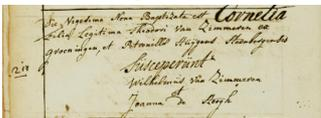 Die Vigesima Nona Baptizata est Cornelia
filia Legitima Theodori van Zimmeren ex
Groeningen, et Petronella Huijgens Steenbergensis
Susceperunt
Wilhelmus van Zimmeren
et
Joanna de Bergh